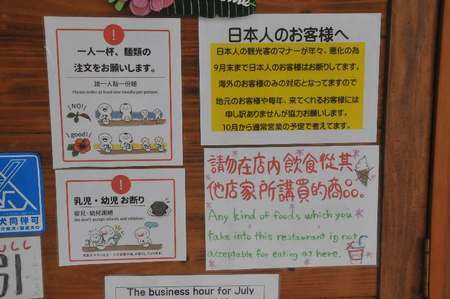 一人一杯、麺類の
注文をお願いします。
請一人點一份麵
Please order at least one noodle per person.
NO!!
good!
日本人のお客様へ
日本人の観光客のマナーが年々、悪化の為
9月末まで日本人のお客様はお断りしてます。
海外のお客様のみの対応となってますので
地元のお客様や毎年、来てくれるお客様には
申し訳ありませんが協力お願いします。
10月から通常営業の予定で考えてます。
乳児・幼児 お断り
嬰兒・幼兒謝絕
請勿在店内飲食從其
他店家所購買的商品。
Any kind of foods which you
take into this restaurant is not
acceptable for eating at here.
犬同伴可
The business hour for July